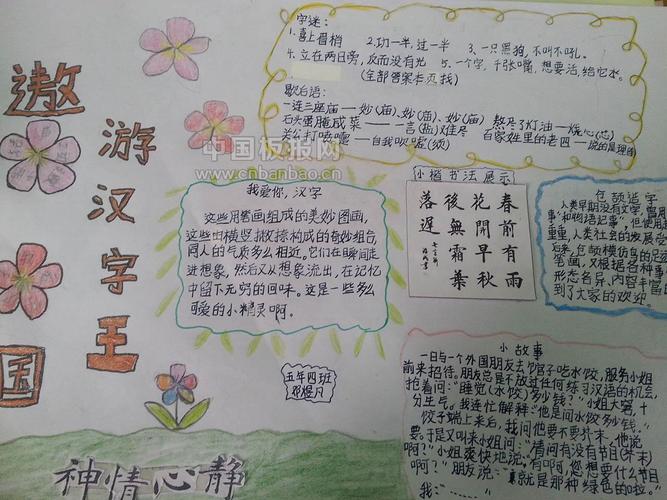 遨游汉字王国
字迷:
1.喜上眉梢 2.功一半,过一半 3.一只黑狗,不叫不吼。
4.立在两日旁,反而没有光 5.一个字,千张嘴,想要活,给它水。
(全部答案本页找)
歇后语:
一连三座庙——妙(庙)、妙(庙)、妙(庙)
熬尽了灯油——烧心(芯)
石头蛋腌咸菜——一言(盐)难尽
百家姓里的老四——说的是理
关公打喷嚏——自我吹嘘(须)
中国板报网
www.cnbanbao.cn
小楷书法展示
春前有雨
花開早秋
後無霜葉
落遲
我爱你,汉字
这些用笔画组成的美妙图画,
这些由横竖撇捺构成的奇妙组合,
同人的气质多么相近。它们在瞬间走
进想象,然后又从想象流出,在记忆
中留下无穷的回味。这是一些多么
可爱的小精灵啊。
仓颉造字
人类早期没有文字,曾用
事"和物语记事",但使用
重重,人类社会的发展
后来,仓颉模仿鸟的足迹
笔画,又根据各种事
形态各异、内容丰富的
到了大家的欢迎
五年四班
小故事
一日与一个外国朋友去饺子馆吃水饺,服务小姐
前来招待。朋友总是不放过任何练习汉语的机会,
抢着问:"睡觉(水饺)多少钱?"小姐大窘,十
分生气。我连忙解释:"他是问水饺多少钱。"
饺子端上来后,我问他要不要芥末,他说
要。于是又叫来小姐问:"请问有没有节目(芥末)
啊?"小姐爽快地说:"有啊,您想要什么节目
啊?"朋友说:"就是那种绿色的啦。"
我:……
神情心静